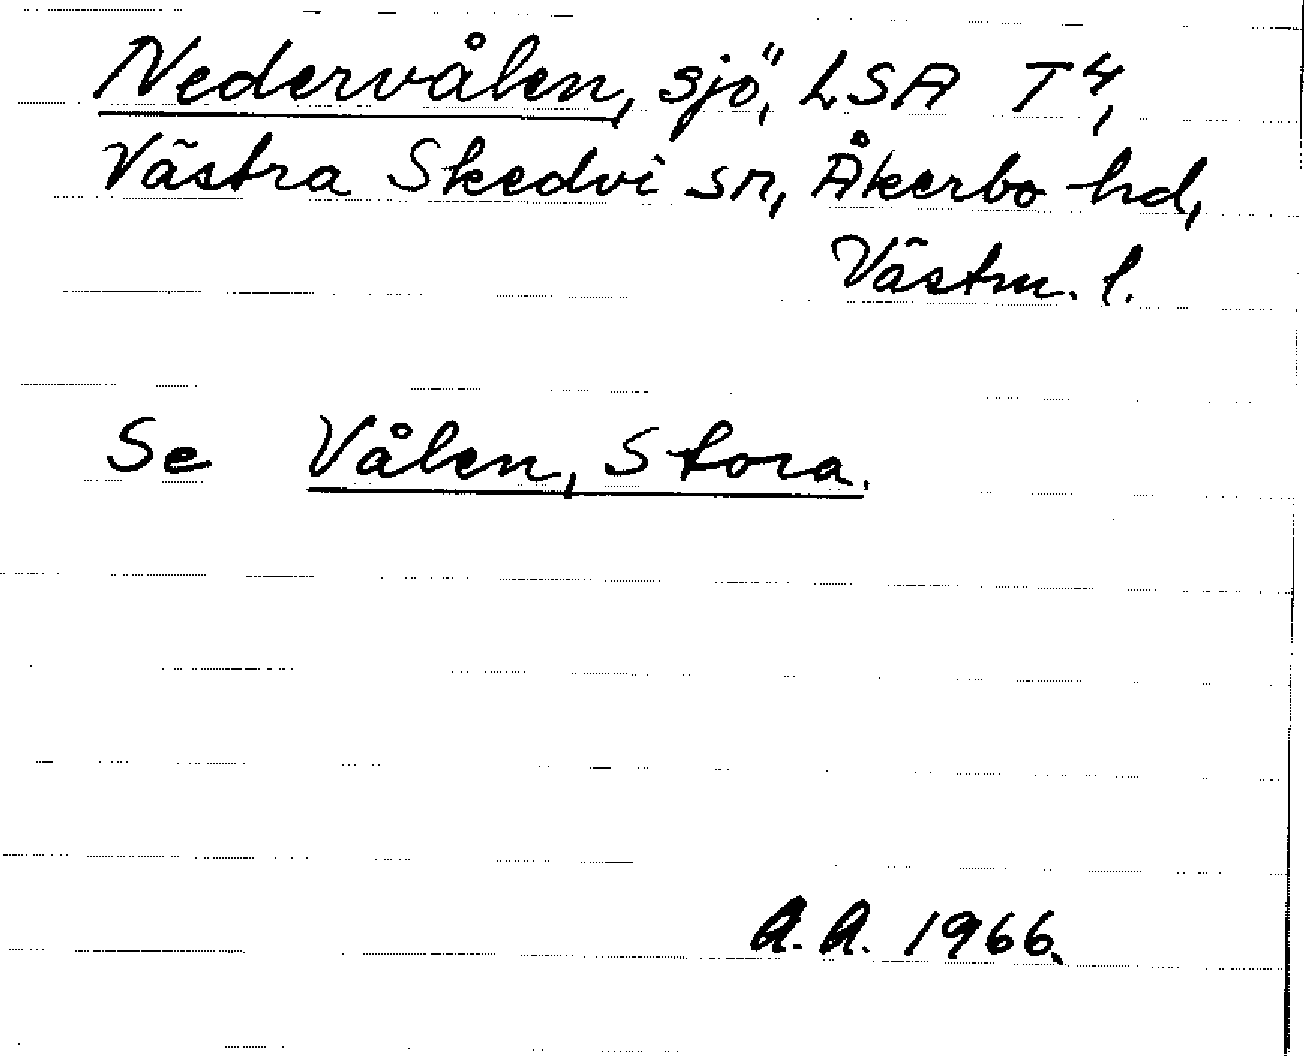 Nedervålen, sjö, LSA T4,
Västra Skedvi sn, Åkerbo hd,
Västm. l.
Se Vålen, Stora.
A.A. 1966.